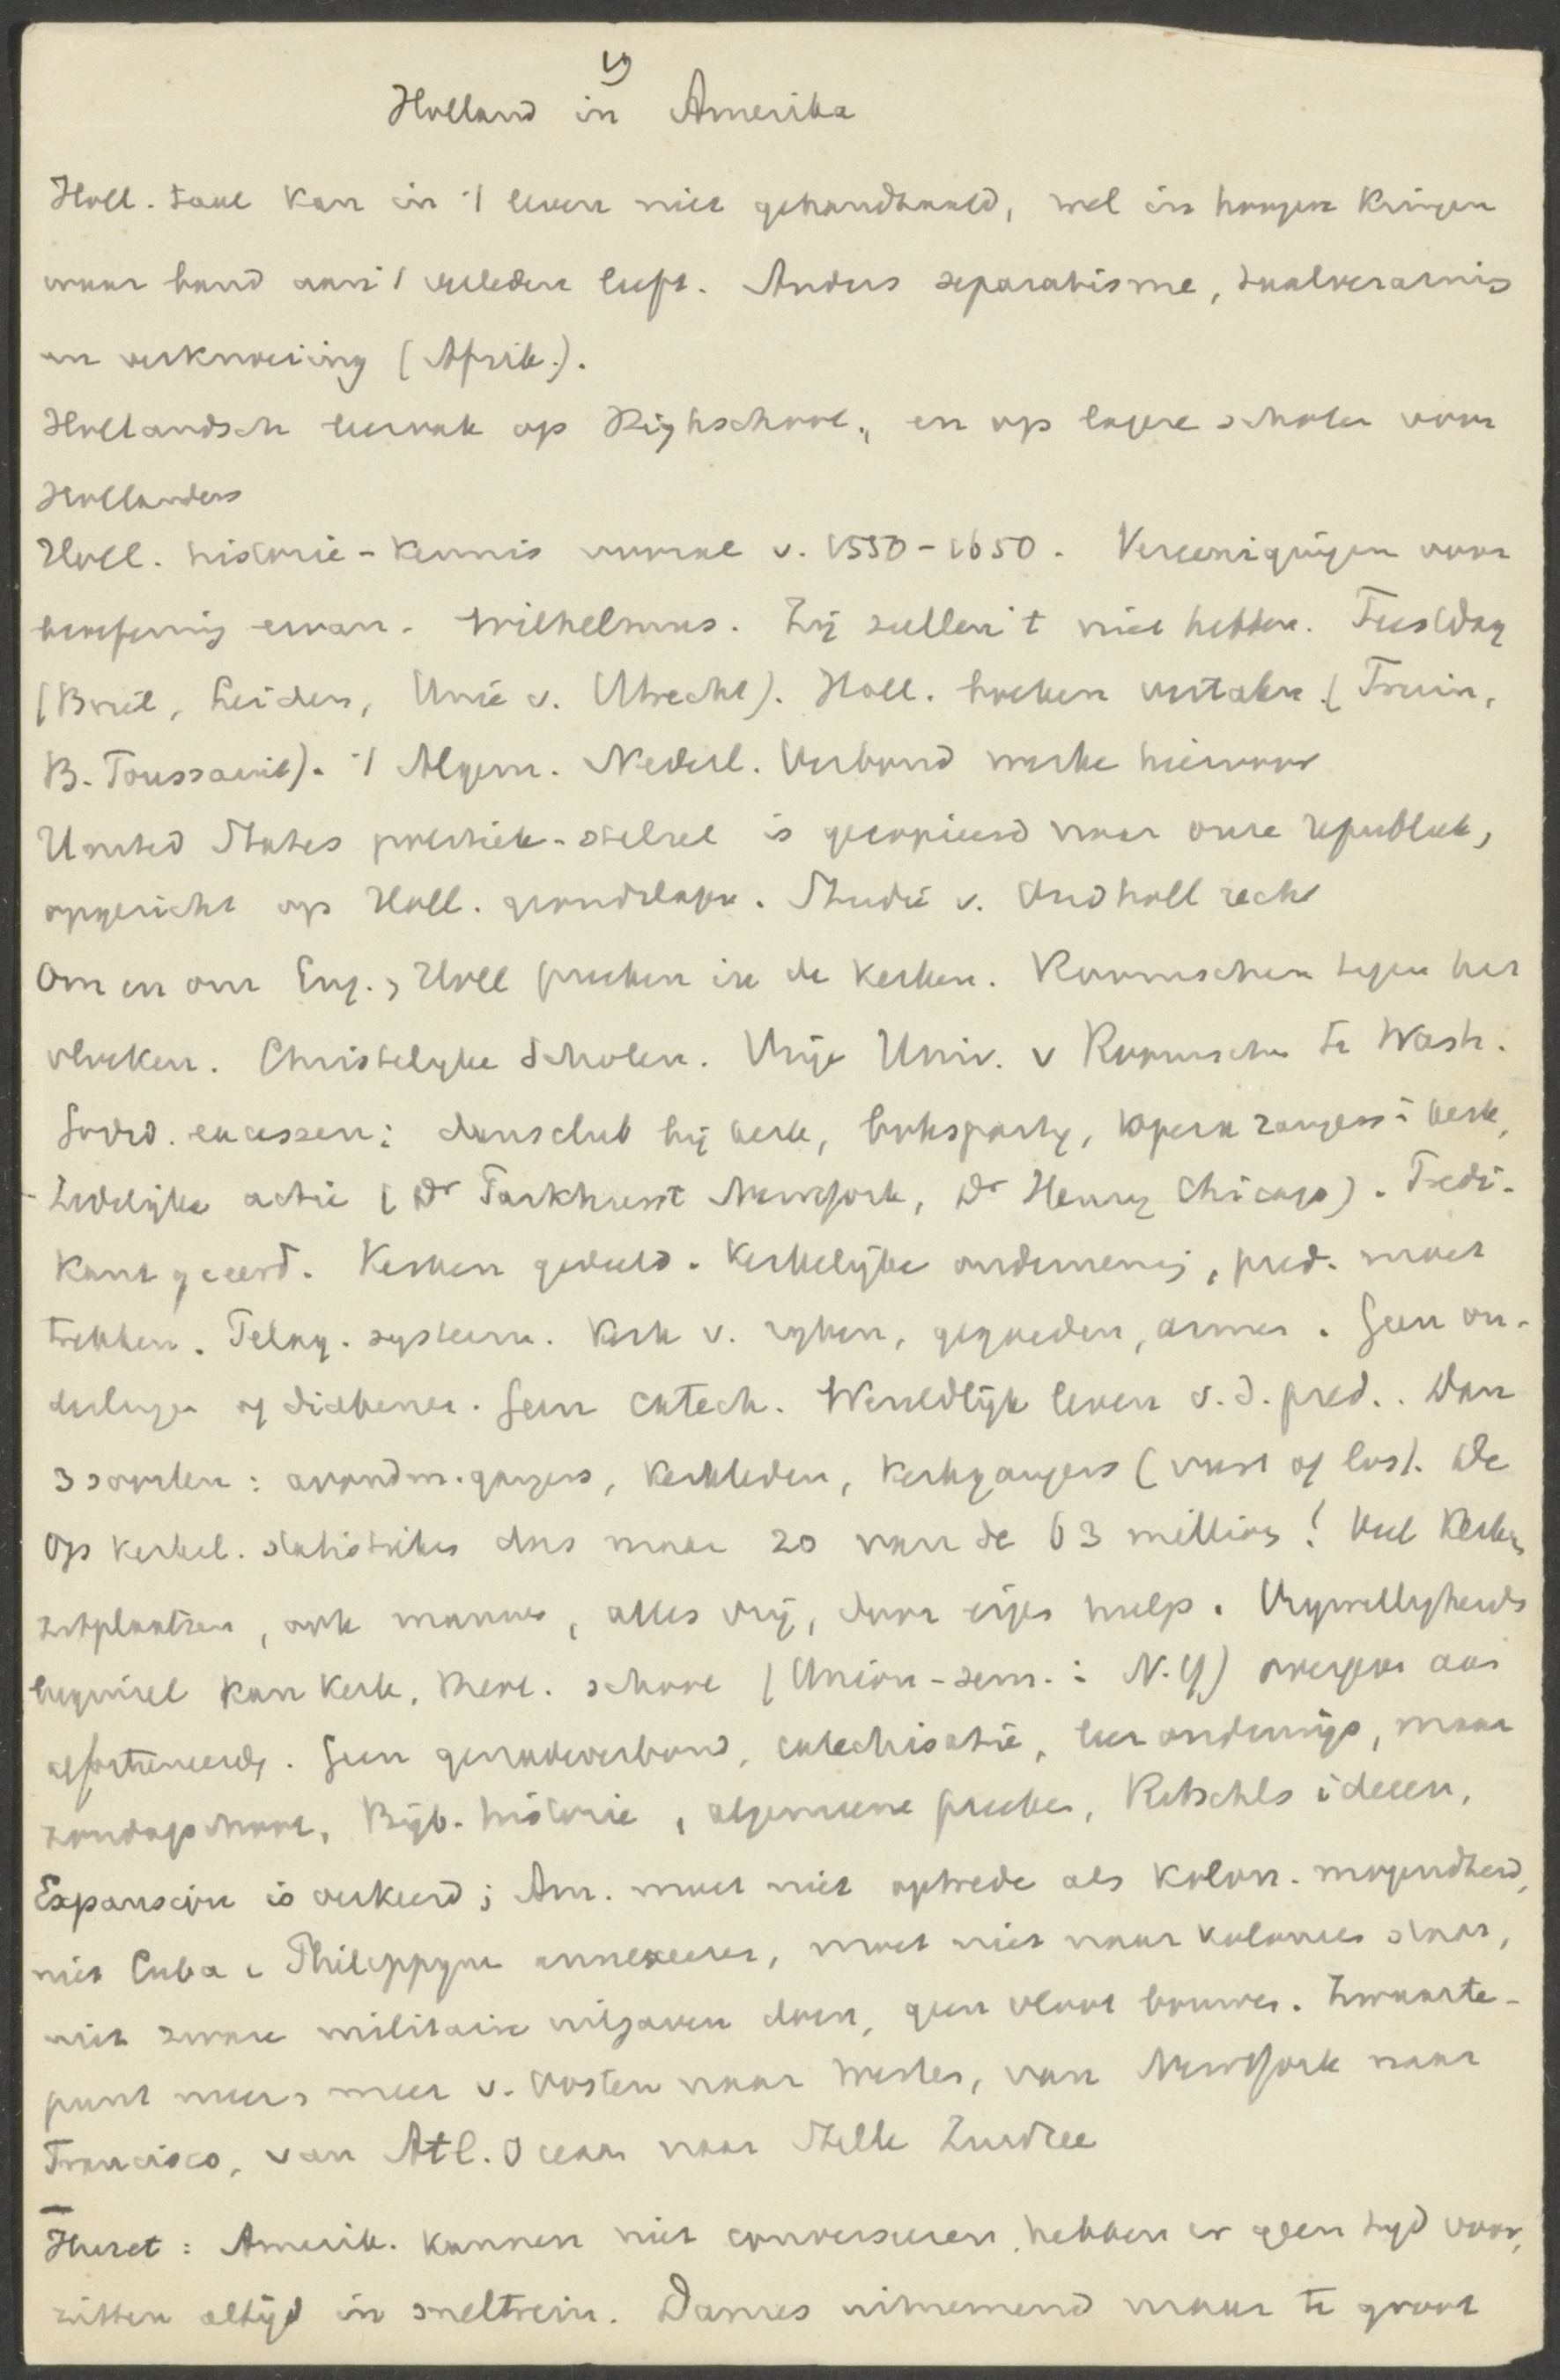 19
Holland in Amerika
Holl. taal kan in 't leven niet gehandhaafd, wel in hoogere kringen
waar band aan 't verleden leeft. Anders separatisme, taalverarming
en verknoeiing (Afrik.).
Hollandsch leervak op Highschool, en op lagere scholen voor
Hollanders
Holl. historie-kennis vooral v. 1550-1650. Vereenigingen voor
beoefening ervan. Wilhelmus. Zij zullen 't niet hebben. Feestdag
(Briel, Leiden, Unie v. Utrecht). Holl. boeken vertalen (Fruin,
B. Toussaint). 't Algem. Nederl. Verbond werke hiervoor
United States politiek-stelsel is gecopieerd naar onze republiek,
opgericht op Holl. grondslagen. Studie v. Oudholl recht
Om en om Eng., Holl preeken in de kerken. Roomschen tegen het
vloeken. Christelyke Scholen. Vrije Univ. v Roomschen te Wash.
Godsd. excessen: dansclub bij kerk, boksparty, opera zangeres i kerk,
Zedelijke actie (Dr Parkhurst Newyork, Dr Henry Chicago). Predi-
kant geeerd. Kerken geduld. Kerkelijke onderneming, pred. moet
trekken. Telang. systeem. Kerk v. ryken, gegoeden, armen. Geen ou-
derlingen of diakenen. Geen catech. Wereldlijk leven v. d. pred.. Dan
3 soorten: avondm.gangers, kerkleden, kerkgangers (vast of los). De
Op kerkel. statistieken dus maar 20 van de 63 millioen! Veel kerken
zitplaatsen, ook mannen, alles vrij, door eigen hulp. Vrywilligheids
beginsel kan kerk, theol. school (Union-sem. i N.Y) overgeven aan
gefortuneerde. Geen genadeverbond, catechisatie, leer onderwijs, maar
zondagschool, Bijb. historie, algemeene preeken, Ritschls ideeen,
Expansion is verkeerd; Am. moet niet optreden als kolon. mogendheid,
niet Cuba & Philippynen annexeeren, moet niet naar kolonies staan,
niet zware militaire uitgaven doen, geen vloot bouwen. Zwaarte-
punt meer, meer v. Oosten naar Westen, van Newyork naar
Francisco, van Atl. Oceaan naar Stille Zuidzee
Huret: Amerik. kunnen niet converseeren, hebben er geen tyd voor,
zitten altijd in sneltrein. Dames uitnemend maar te groot